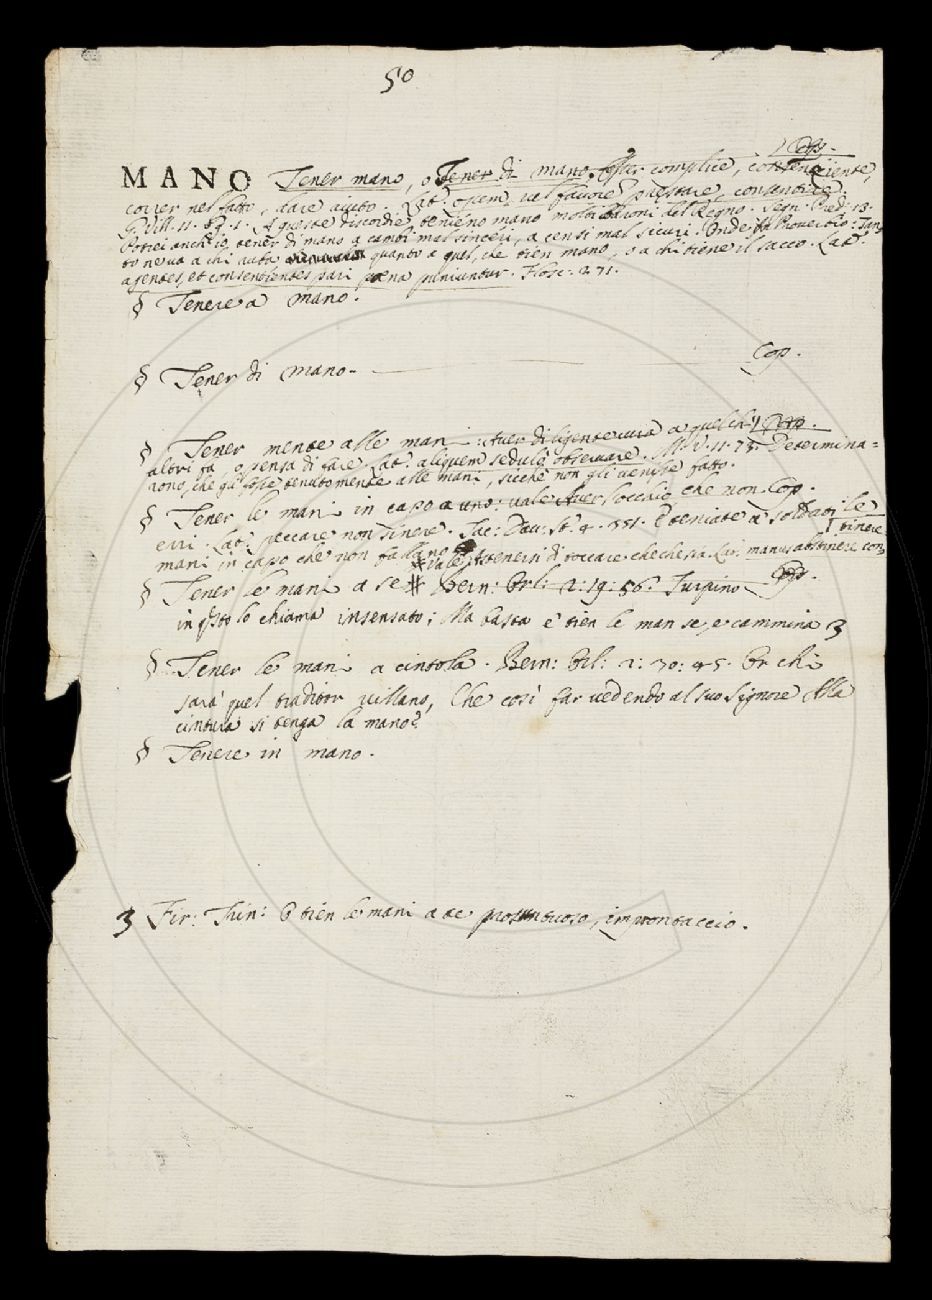 50
Cop.
MANO Tener mano, o Tener di mano. Esser complice, consenziente,
correr nel fatto, dare aiuto. Lat. opem vel favore prestare, consentire.
G. Vill. 11. 89. 1. A queste discordie tenieno mano molti baroni del Regno. Segn. Pred. 13.
Potrei anch'io tener di mano a cambi mal sinceri, a censi mal sicuri. Onde in Proverbio: Tan
to ne va a chi ruba quanto a quel, che tien mano, o a chi tiene il sacco. Lat.
agentes, et consentientes pari poena puniuntur. Flos. 271.
§ Tenere a mano.
§ Tener di mano. Cop.
§ Tener mente alle mani: Aver diligente cura a quel ch'
altri fa, o pensa di fare. Lat. aliquem sedulo observare. M. V. 11. 73. Determina=
rono, che gli fosse tenuto mente alle mani, sicchè non gli venisse fatto.
§ Tener le mani in capo a uno: vale Aver l'occhio che non Cop.
erri. Lat: peccare non sinere. Tac: Dav: St. 4. 351. E teniate a' soldati le
mani in capo che non facciano
* vale Astenersi di toccare chechesia. Lat: manus abstinere, con
tinere
§ Tener le mani a se # Bern: Orl: 2: 19: 56. Turpino Cop.
in q̃sto lo chiama insensato; Ma basta e' tien le man se, e cammina 3
§ Tener le mani a cintola. Bern: Orl: 2: 30: 45. Or chi
sarà quel traditor villano, Che così far vedendo al suo signore Alla
cintura si tenga la mano?
§ Tenere in mano.
3 Fir: Trin: E tien le mani a te prosuntuoso, improntaccio.